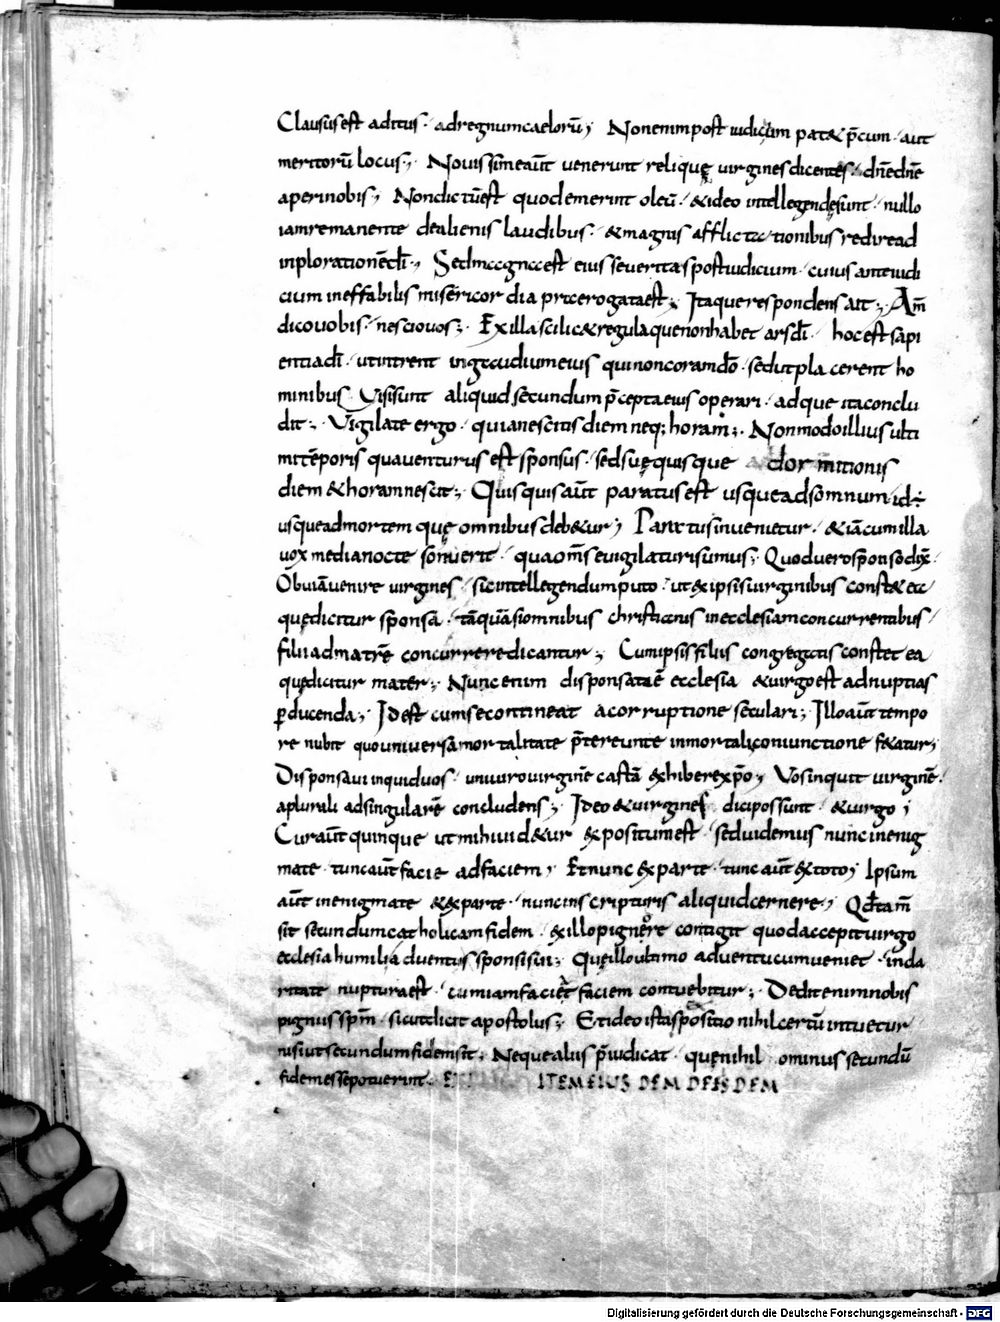 Clausus est aditus · ad regnum caeloru̅; Non enim post iudicium pat& p̅cum · aut
meritoru̅ locus; Nouissime au̅t uenerunt reliquę uirgines dicentes · dn̅e dn̅e
aperi nobis; Non dictu̅ est quod emerint oleu̅ · & ideo intellegendę sunt · nullo
iam remanente de alienis laudibus · & magnis afflictationibus redire ad
inploratione̅ di̅; Sed magna est eius seueritas post iudicium · cuius ante iudi
cium ineffabilis misericordia praerogata est; Itaque respondens ait; Am̅
dico uobis · nescio uos; Ex illa scilic& regula que non habet ars di̅ · hoc est sapi
entia di̅ · ut intrent in gaudium eius qui non coram do̅ · sed ut placerent ho
minibus Visi sunt aliquid secundum p̅cepta eius operari · adque ita conclu
dit; Vigilate ergo · quia nescitis diem neq; horam; Non modo illius ulti
mi te̅poris qua uenturus est sponsus · sed suę quisque dormitionis
diem & horam nescit; Quisquis au̅t paratus est usque ad somnum id ÷
usque ad mortem quę omnibus deb&ur; Paratus inuenietur · & ia̅ cum illa
uox media nocte sonuerit · qua om̅s euigilaturi sumus; Quod uero sponso dix̅ ·
Obuia̅ uenire uirgines · sic intellegendum puto · ut ex ipsis uirginibus const& ea
quę dicitur sponsa · ta̅qua̅ si omnibus christianis in ecclesiam concurrentibus ·
filii ad matre̅ concurrere dicantur; Cum ipsis filiis congregatis constet ea
quę dicitur mater; Nunc enim disponsata e̅ ecclesia & uirgo est ad nuptias
p̱ducenda; Id est cum se contineat a corruptione seculari; Illo au̅t tempo
re nubit quo uniuersa mortalitate p̅tereunte inmortali coniunctione f&atur;
Disponsaui inquid uos · uni uiro uirgine̅ casta̅ exhibere xp̅o; Vos inquit uirgine̅ ·
a plurali ad singulare̅ concludens; Ideo & uirgines dici possunt · & uirgo;
Cur au̅t quinque ut mihi uid&ur expositum est · sed uidemus nunc in enig
mate · tunc au̅t facie ad faciem; Et nunc ex parte · tunc au̅t ex toto; Ipsum
au̅t in enigmate & ex parte · nunc in scripturis aliquid cernere; Qd̅ tam̅
sit secundum catholicam fidem · ex illo pignore contigit quod accepit uirgo
ecclesia humilia duentus sponsi sui; Quę illo ultimo aduentu cum ueniet · in cla
ritate nuptura est · cum iam facie ad faciem contuebitur; Dedit enim nobis
pignus sp̅m · sicut dicit apostolus; Et ideo ista spositio nihil certu̅ intuetur
nisi ut secundum fidem sit; Neque aliis p̅iudicat quę nihilominus secundu̅
fidem esse potuerint. ITEM EIUSDEM DE EISDEM